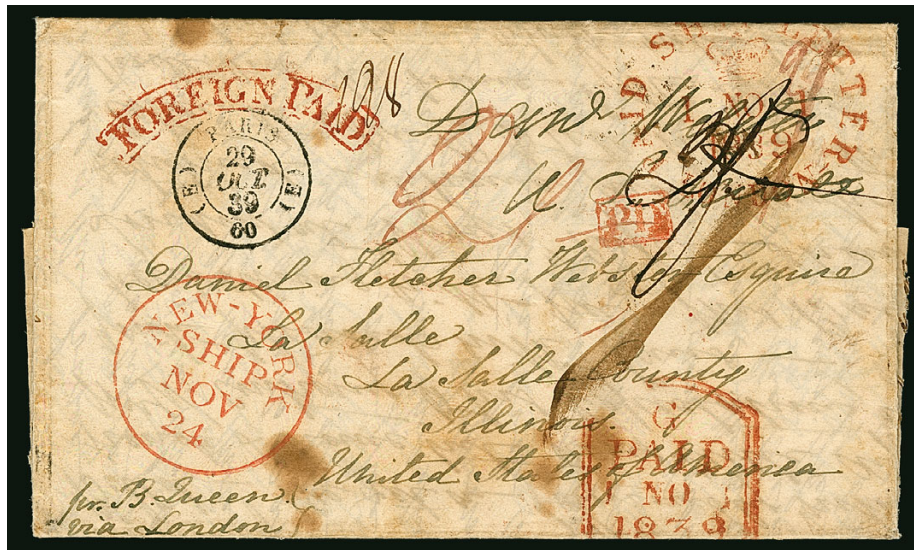 FOREIGN PAID
198
PAID SHIP LETTER
1 NO 1
PARIS
29
OCT
39
(E) (E)
60
Danl Webster
U. S. Senate
2
PD
Daniel Fletcher Webster Esquire
La Salle
La Salle County
Illinois.
United States of America
NEW-YORK
SHIP
NOV
24
G
PAID
1 NO 1
1839
pr. B. Queen
via London